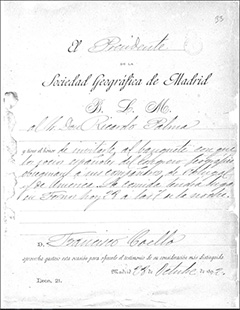 33
El Presidente
DE LA
Sociedad Geográfica de Madrid
B. L. M.
al Sr. Don Ricardo Palma
y tiene el honor de invitarle al banquete con que
los socios españoles del Congreso Geográfico
obsequian a sus compañeros de Portugal
y de America. La comida tendrá lugar
en Fornos hoy 23 a las 7 de la noche.
D. Francisco Coello
aprovecha gustoso esta ocasión para ofrecerle el testimonio de su consideración más distinguida.
Madrid 23 de Octubre de 1892.
León, 21.